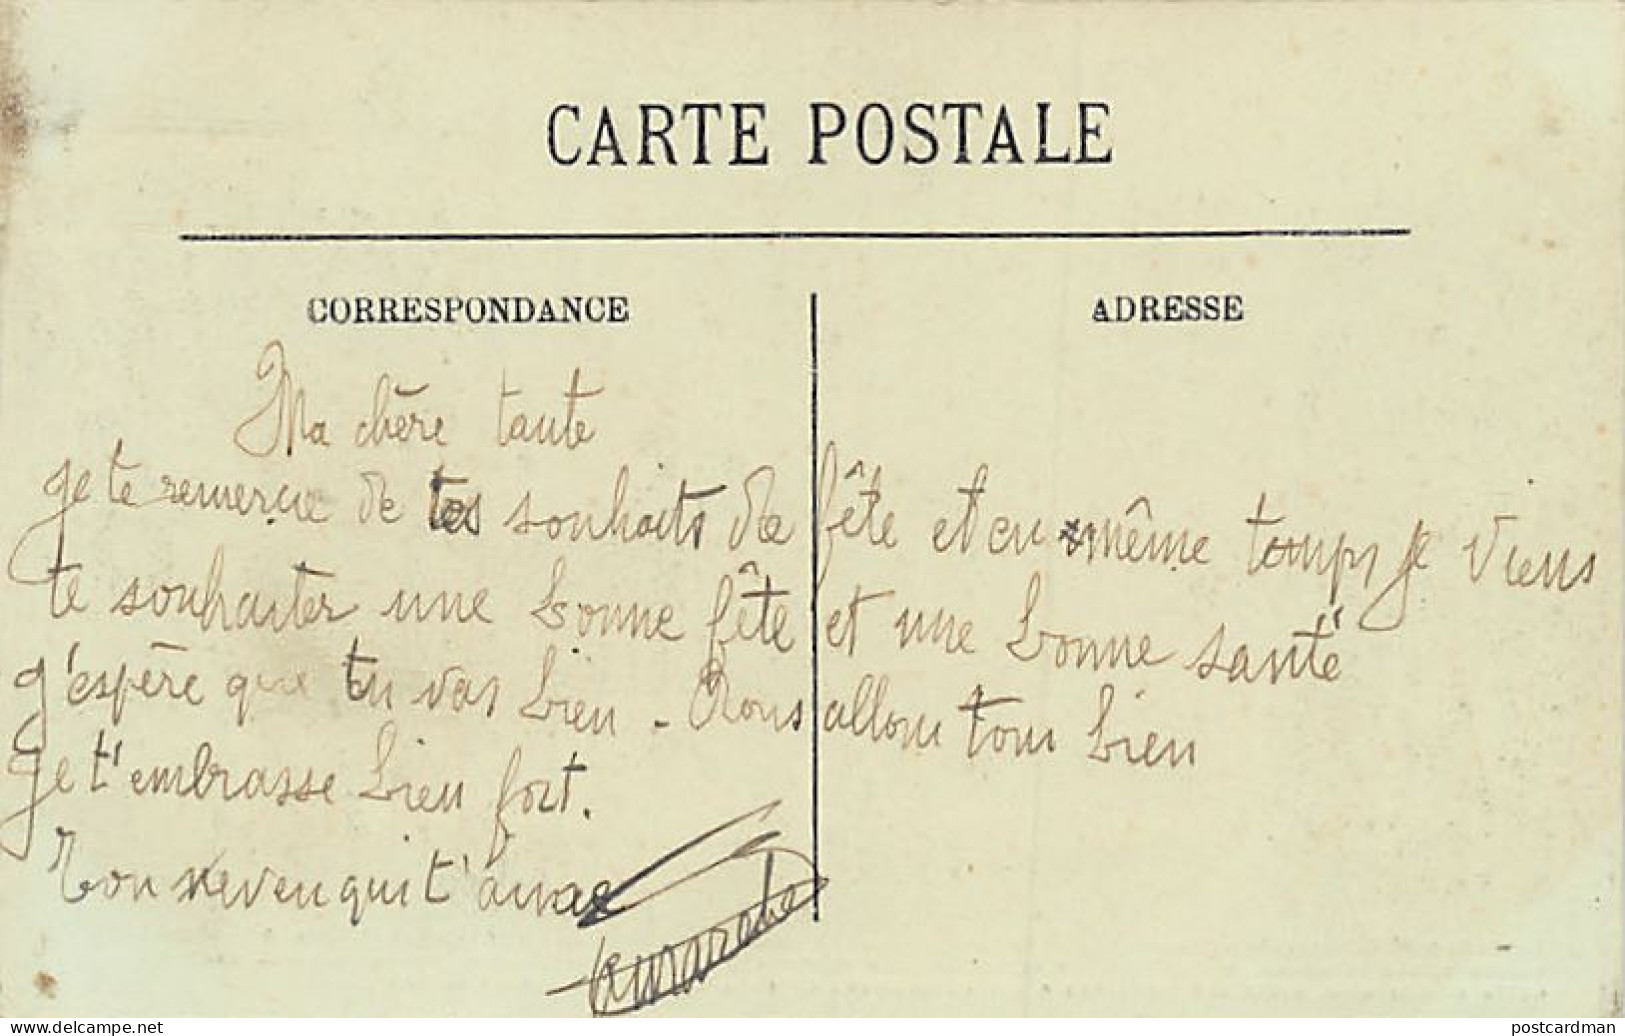 CARTE POSTALE
CORRESPONDANCE
ADRESSE
Ma chère tante
je te remercie de tes souhaits de fête et en même temps je viens
te souhaiter une bonne fête et une bonne santé
j'espère que tu vas bien - Nous allons tous bien
Je t'embrasse bien fort.
Ton neveu qui t'aime
delcampe.net
postcardman